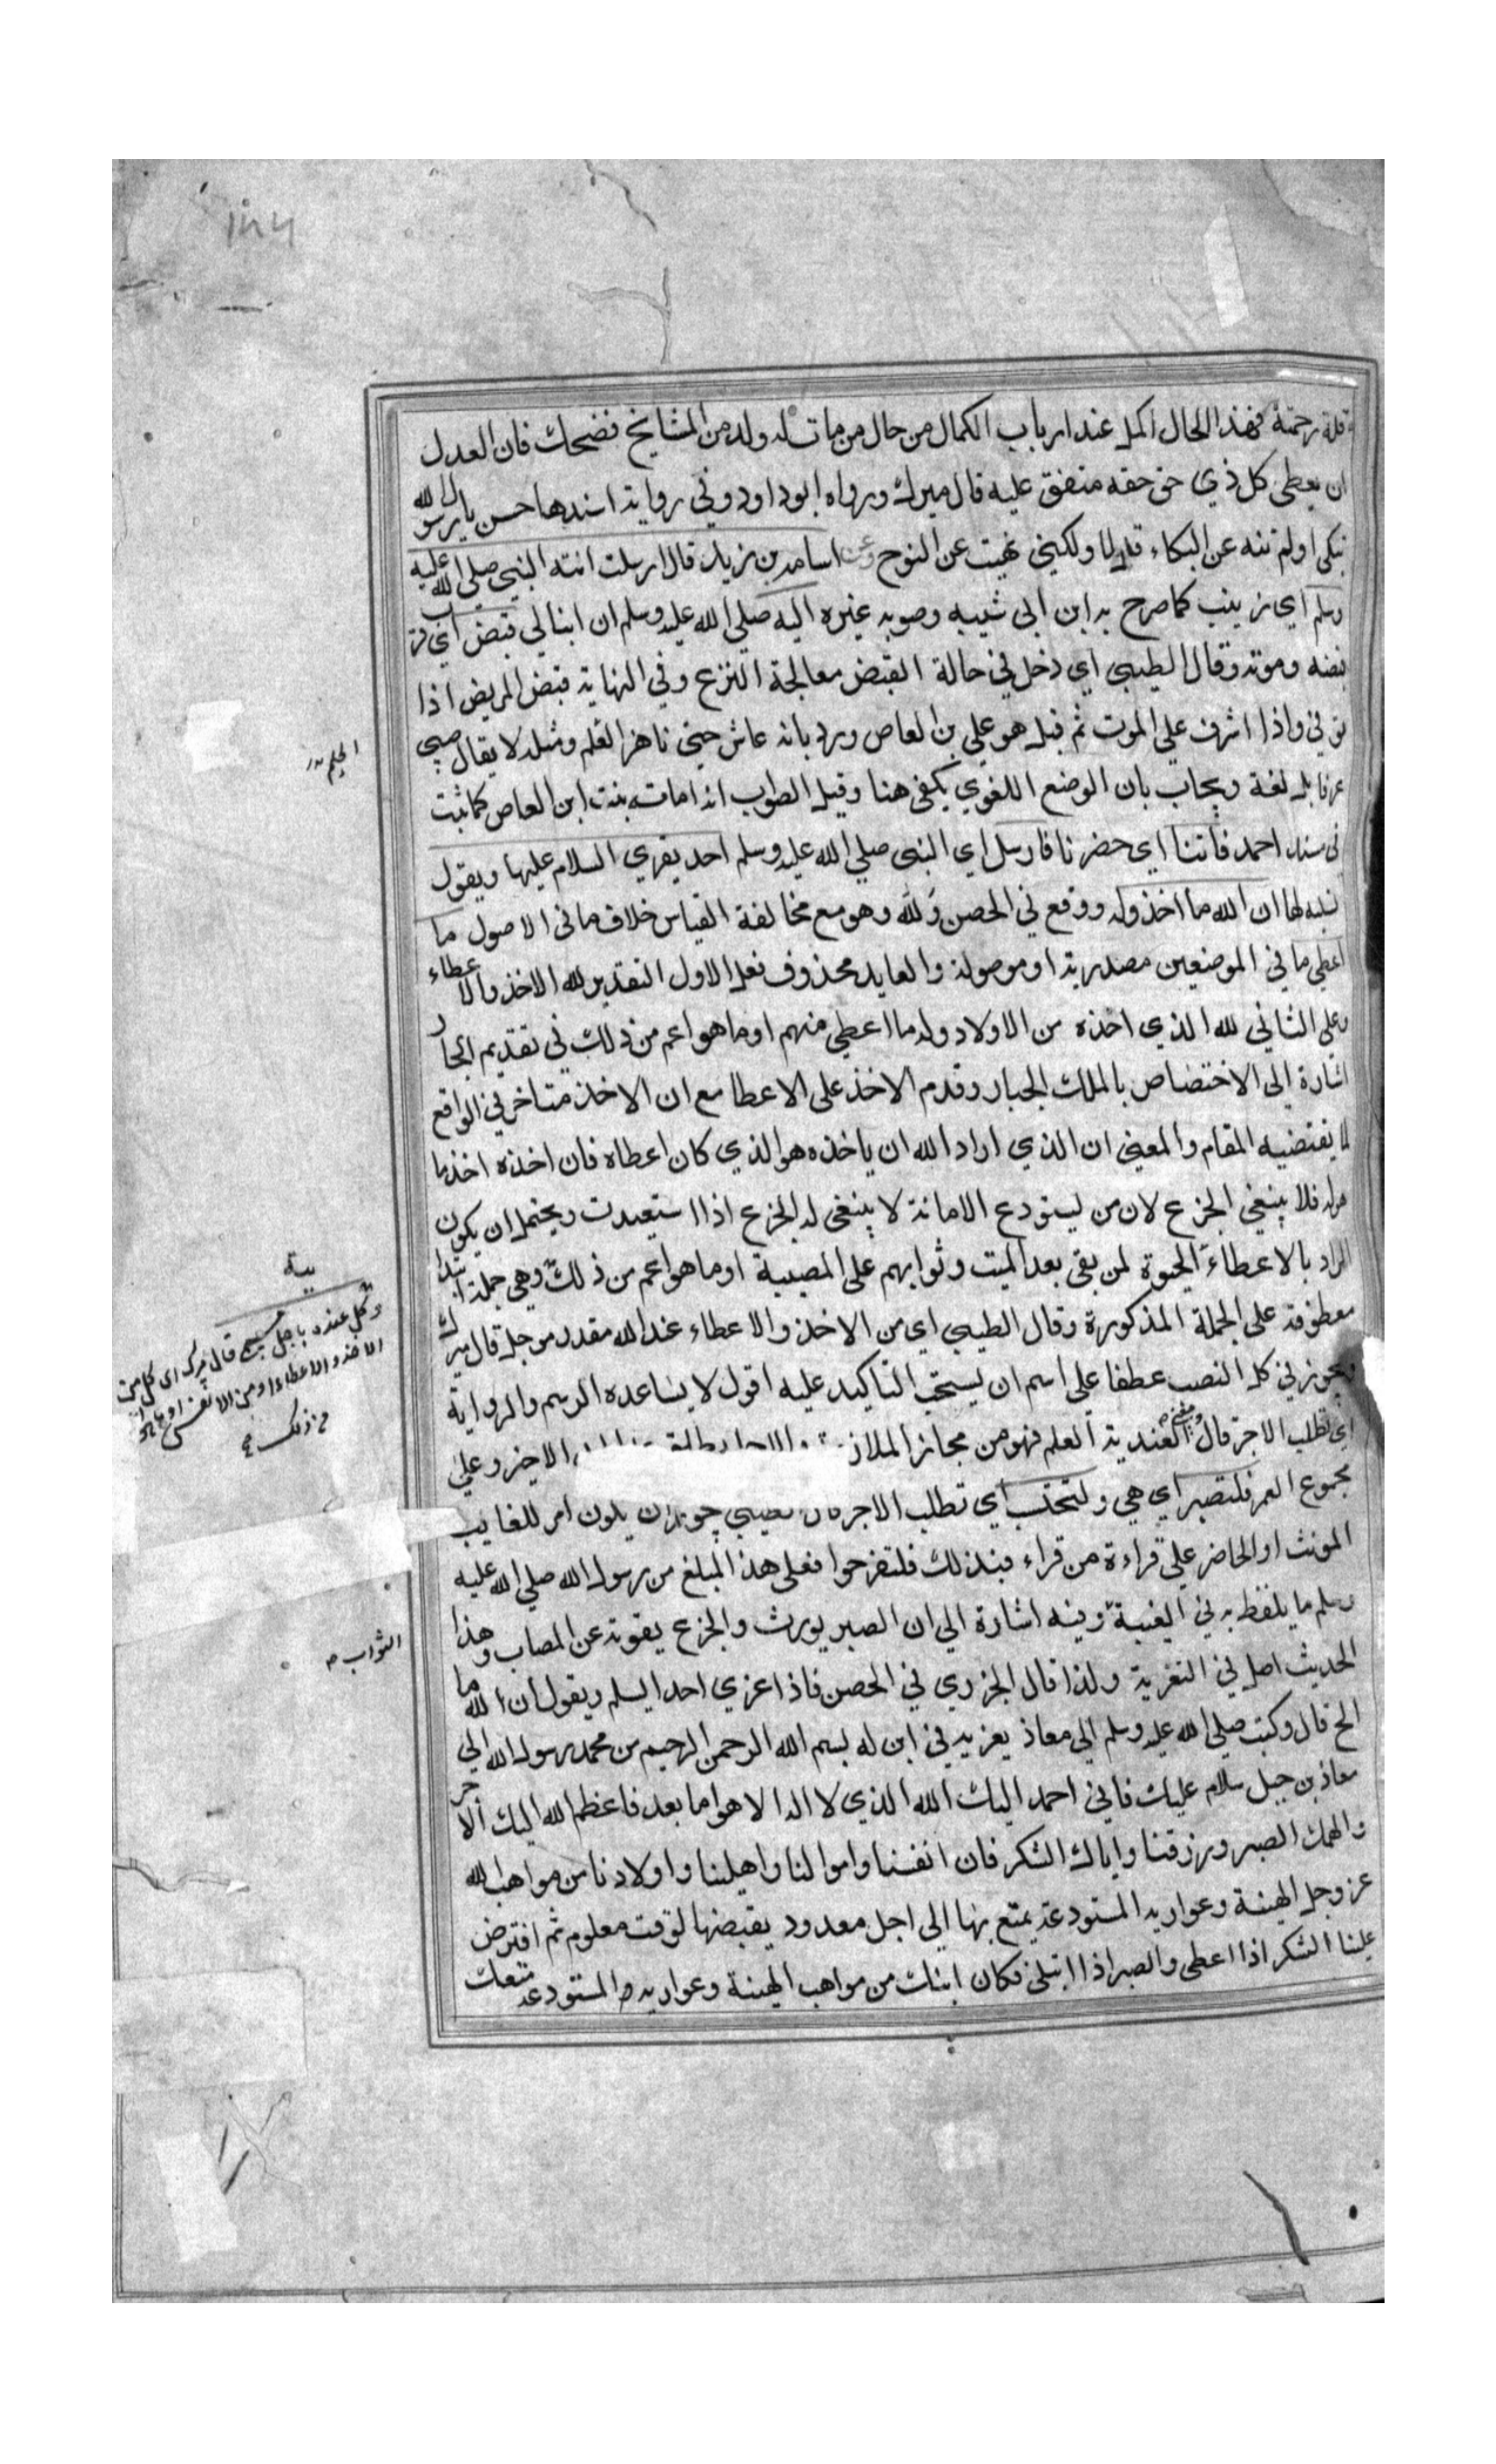 ١٣٦
قلة رحمة فهذا الحال اكمل عند ارباب الكمال من حال من مات له ولد من المشايخ فضحك فان العدل
ان يعطي كل ذي حق حقه متفق عليه قال ميرك ورواه ابو داود وفي رواية اسندها حسن يا رسول الله
تبكي اولم تنه عن البكاء قال لا ولكني نهيت عن النوح وعن اسامة بن زيد قال ارسلت ابنته النبي صلي الله عليه
وسلم اي زينب كما صرح به ابن ابي شيبه وصوبه غيره اليه صلي الله عليه وسلم ان ابنا لي قبض اي قرب
قبضه وموته وقال الطيبي اي دخل في حالة القبض معالجة النزع وفي النهاية قبض المريض اذا
توفي واذا اشرف علي الموت ثم قيل هو علي بن العاص ورد بانه عاش حتي ناهز القلم ومثله لا يقال صبي
عرفا بل لغة ويجاب بان الوضع اللغوي يكفي هنا وقيل الصواب انه امامة بنت ابن العاص كما ثبت
في سند احمد فاتنا اي حضرنا فارسل اي النبي صلي الله عليه وسلم احد يقري السلام عليها ويقول
لها ان الله ما اخذ وله ووقع في الحصن ولله وهو مع مخالفة القياس خلاف ما في الاصول ما
اعطي ما في الموضعين مصدرية او موصولة والعايد محذوف فعلي الاول التقدير لله الاخذ والاعطاء
وعلي الثاني لله الذي اخذه من الاولاد وله ما اعطي منهم او ما هو اعم من ذلك في تقديم الجار
اشارة الي الاختصاص بالملك الجبار وقدم الاخذ علي الاعطا مع ان الاخذ متاخر في الواقع
لما يقتضيه المقام والمعني ان الذي اراد الله ان ياخذه هو الذي كان اعطاه فان اخذه اخذ ما
هو له فلا ينبغي الجزع لان من يستودع الامانة لا ينبغي له الجزع اذا استعيدت ويحتمل ان يكون
المراد بالاعطاء الحيوة لمن بقي بعد الميت وثوابهم علي المصيبة او ما هو اعم من ذلك وهي جملة ابتدا
معطوفة علي الجملة المذكورة وقال الطيبي اي من الاخذ والاعطاء عند الله مقدر موجل قال ميرك
يجوز في كل النصب عطفا علي اسم ان يستحب التاكيد عليه اقول لا يساعده الرسم والرواية
اي تطلب الاجر قال العندية العلم فهو من مجاز الملاز الاخير وعلي
مجموع العمر فلتصبر اي هي ولتحتسب اي تطلب الاجر يجوز ان يكون امر للغايب
المونث او الحاضر علي قراءة من قراء فبذلك فلتفرحوا فعلي هذا المبلغ من رسول الله صلي الله عليه
وسلم ما يلفظ به في الغيبة وفيه اشارة الي ان الصبر يورث والجزع يفوته عن المصاب وهذا
الحديث اصل في التعزية ولذا قال الجزري في الحصن فاذا عزي احدا يسلم ويقول ان لله ما
الخ قال وكتب صلي الله عليه وسلم الي معاذ يعزيه في ابن له بسم الله الرحمن الرحيم من محمد رسول الله الي
معاذ بن جبل سلام عليك فاني احمد اليك الله الذي لا اله الا هو اما بعد فاعظم الله اليك الاجر
والهمك الصبر ورزقنا واياك الشكر فان انفسنا واموالنا واهلينا واولادنا من مواهب الله
عز وجل الهينة وعواريه المستودعة يمتع بها الي اجل معدود يقبضها لوقت معلوم ثم افترض
علينا الشكر اذا اعطي والصبر اذا ابتلي فكان ابنك من مواهب الهينة وعواريه المستودعة متعك
الحلم
وكل عنده باجل مسمي قال ميرك اي كل من
الاخذ والاعطاء او من الانفس او ما هو اعم
من ذلك
الثواب